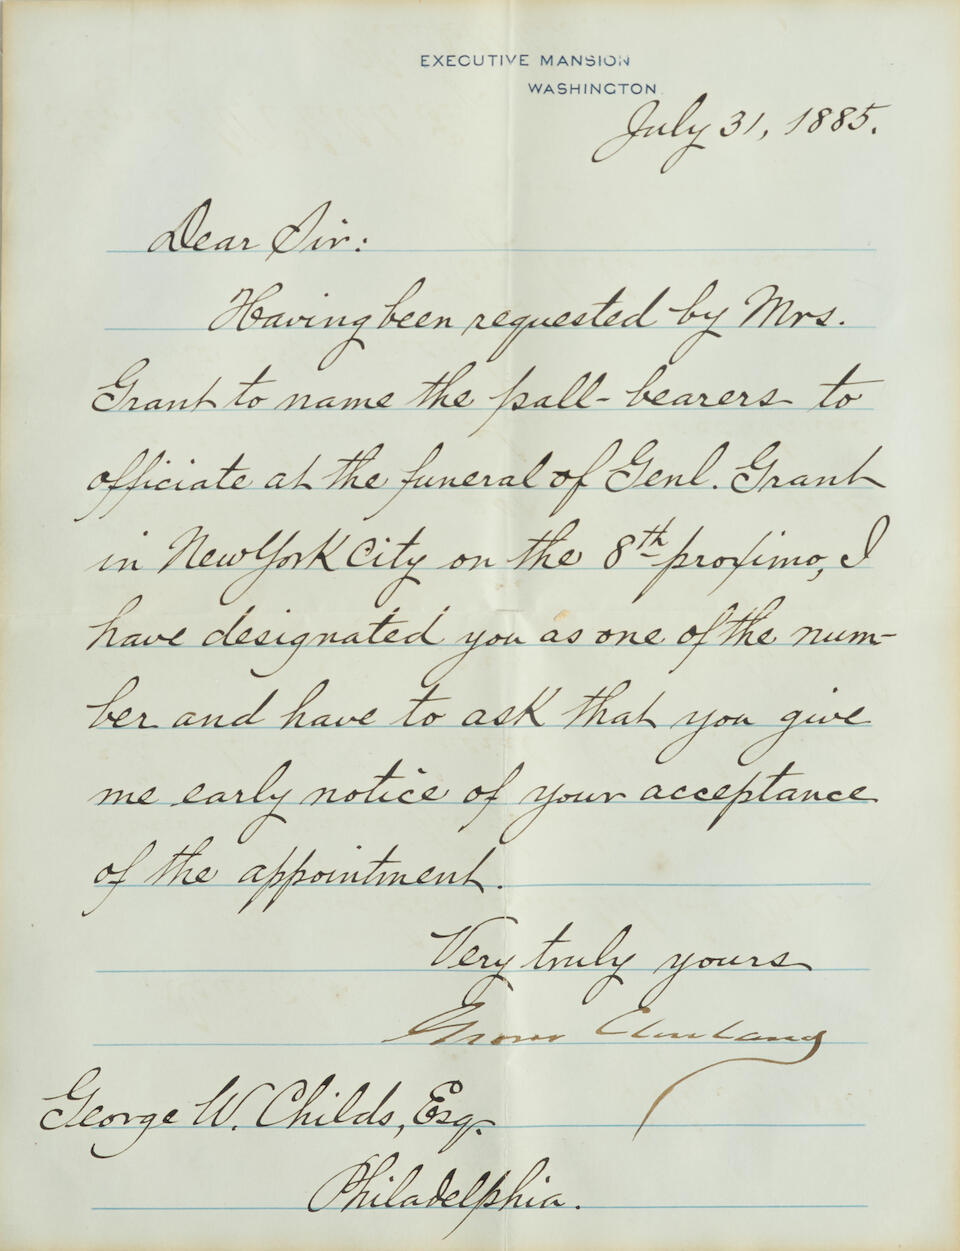 EXECUTIVE MANSION
WASHINGTON.
July 31, 1885.
Dear Sir:
Having been requested by Mrs.
Grant to name the pall-bearers to
officiate at the funeral of Genl. Grant
in New York City on the 8th proximo, I
have designated you as one of the num-
ber and have to ask that you give
me early notice of your acceptance
of the appointment.
Very truly yours
Grover Cleveland
George W. Childs, Esq.
Philadelphia.